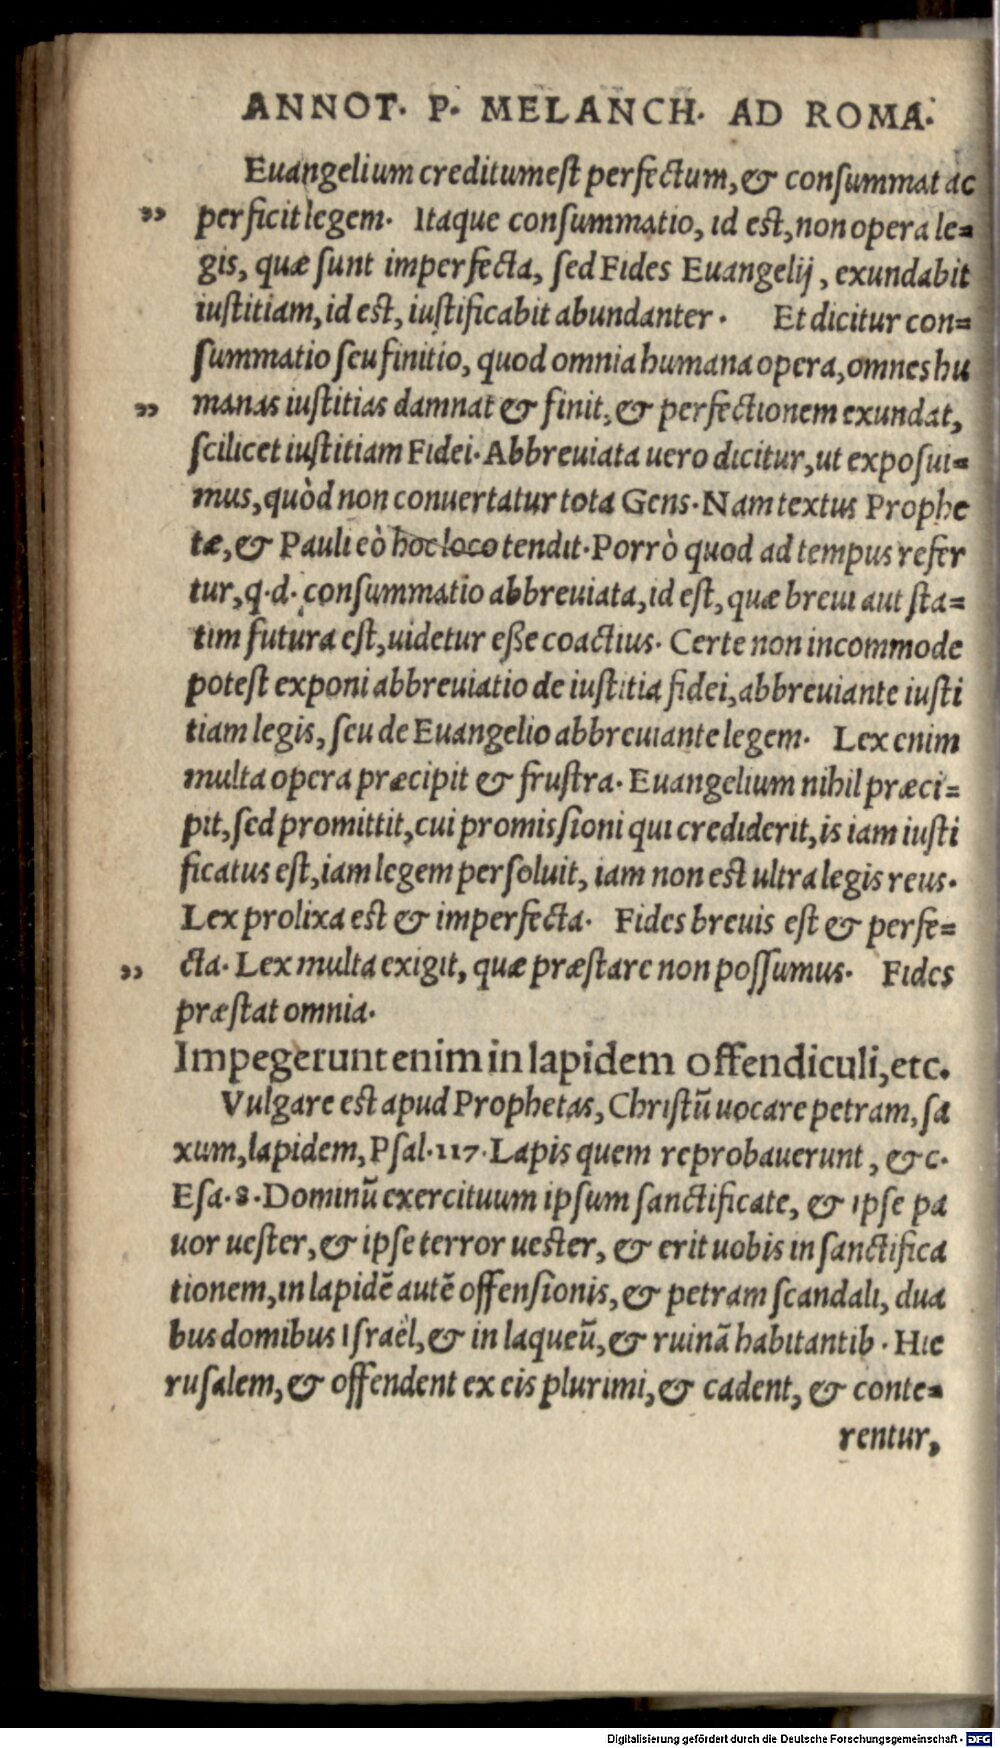 ANNOT. P. MELANCH. AD ROMA.
Euangelium creditum est perfectum, & consummat ac
„ perficit legem. Itaque consummatio, id est, non opera le=
gis, quæ sunt imperfecta, sed Fides Euangelij, exundabit
iustitiam, id est, iustificabit abundanter. Et dicitur con=
summatio seu finitio, quod omnia humana opera, omnes hu
„ manas iustitias damnat & finit, & perfectionem exundat,
scilicet iustitiam Fidei. Abbreuiata uero dicitur, ut exposui=
mus, quòd non conuertatur tota Gens. Nam textus Prophe
tæ, & Pauli eò hoc loco tendit. Porrò quod ad tempus refer
tur, q.d. consummatio abbreuiata, id est, quæ breui aut sta=
tim futura est, uidetur eße coactius. Certe non incommode
potest exponi abbreuiatio de iustitia fidei, abbreuiante iusti
tiam legis, seu de Euangelio abbreuiante legem. Lex enim
multa opera præcipit & frustra. Euangelium nihil præci=
pit, sed promittit, cui promissioni qui crediderit, is iam iusti
ficatus est, iam legem persoluit, iam non est ultra legis reus.
Lex prolixa est & imperfecta. Fides breuis est & perfe=
„ cta. Lex multa exigit, quæ præstare non possumus. Fides
præstat omnia.
Impegerunt enim in lapidem offendiculi, etc.
Vulgare est apud Prophetas, Christũ uocare petram, sa
xum, lapidem, Psal. 117. Lapis quem reprobauerunt, &c.
Esa. 8. Dominũ exercituum ipsum sanctificate, & ipse pa
uor uester, & ipse terror uester, & erit uobis in sanctifica
tionem, in lapidẽ autẽ offensionis, & petram scandali, dua
bus domibus Israël, & in laqueũ, & ruinã habitantib. Hie
rusalem, & offendent ex eis plurimi, & cadent, & conte=
rentur,
Digitalisierung gefördert durch die Deutsche Forschungsgemeinschaft - DFG